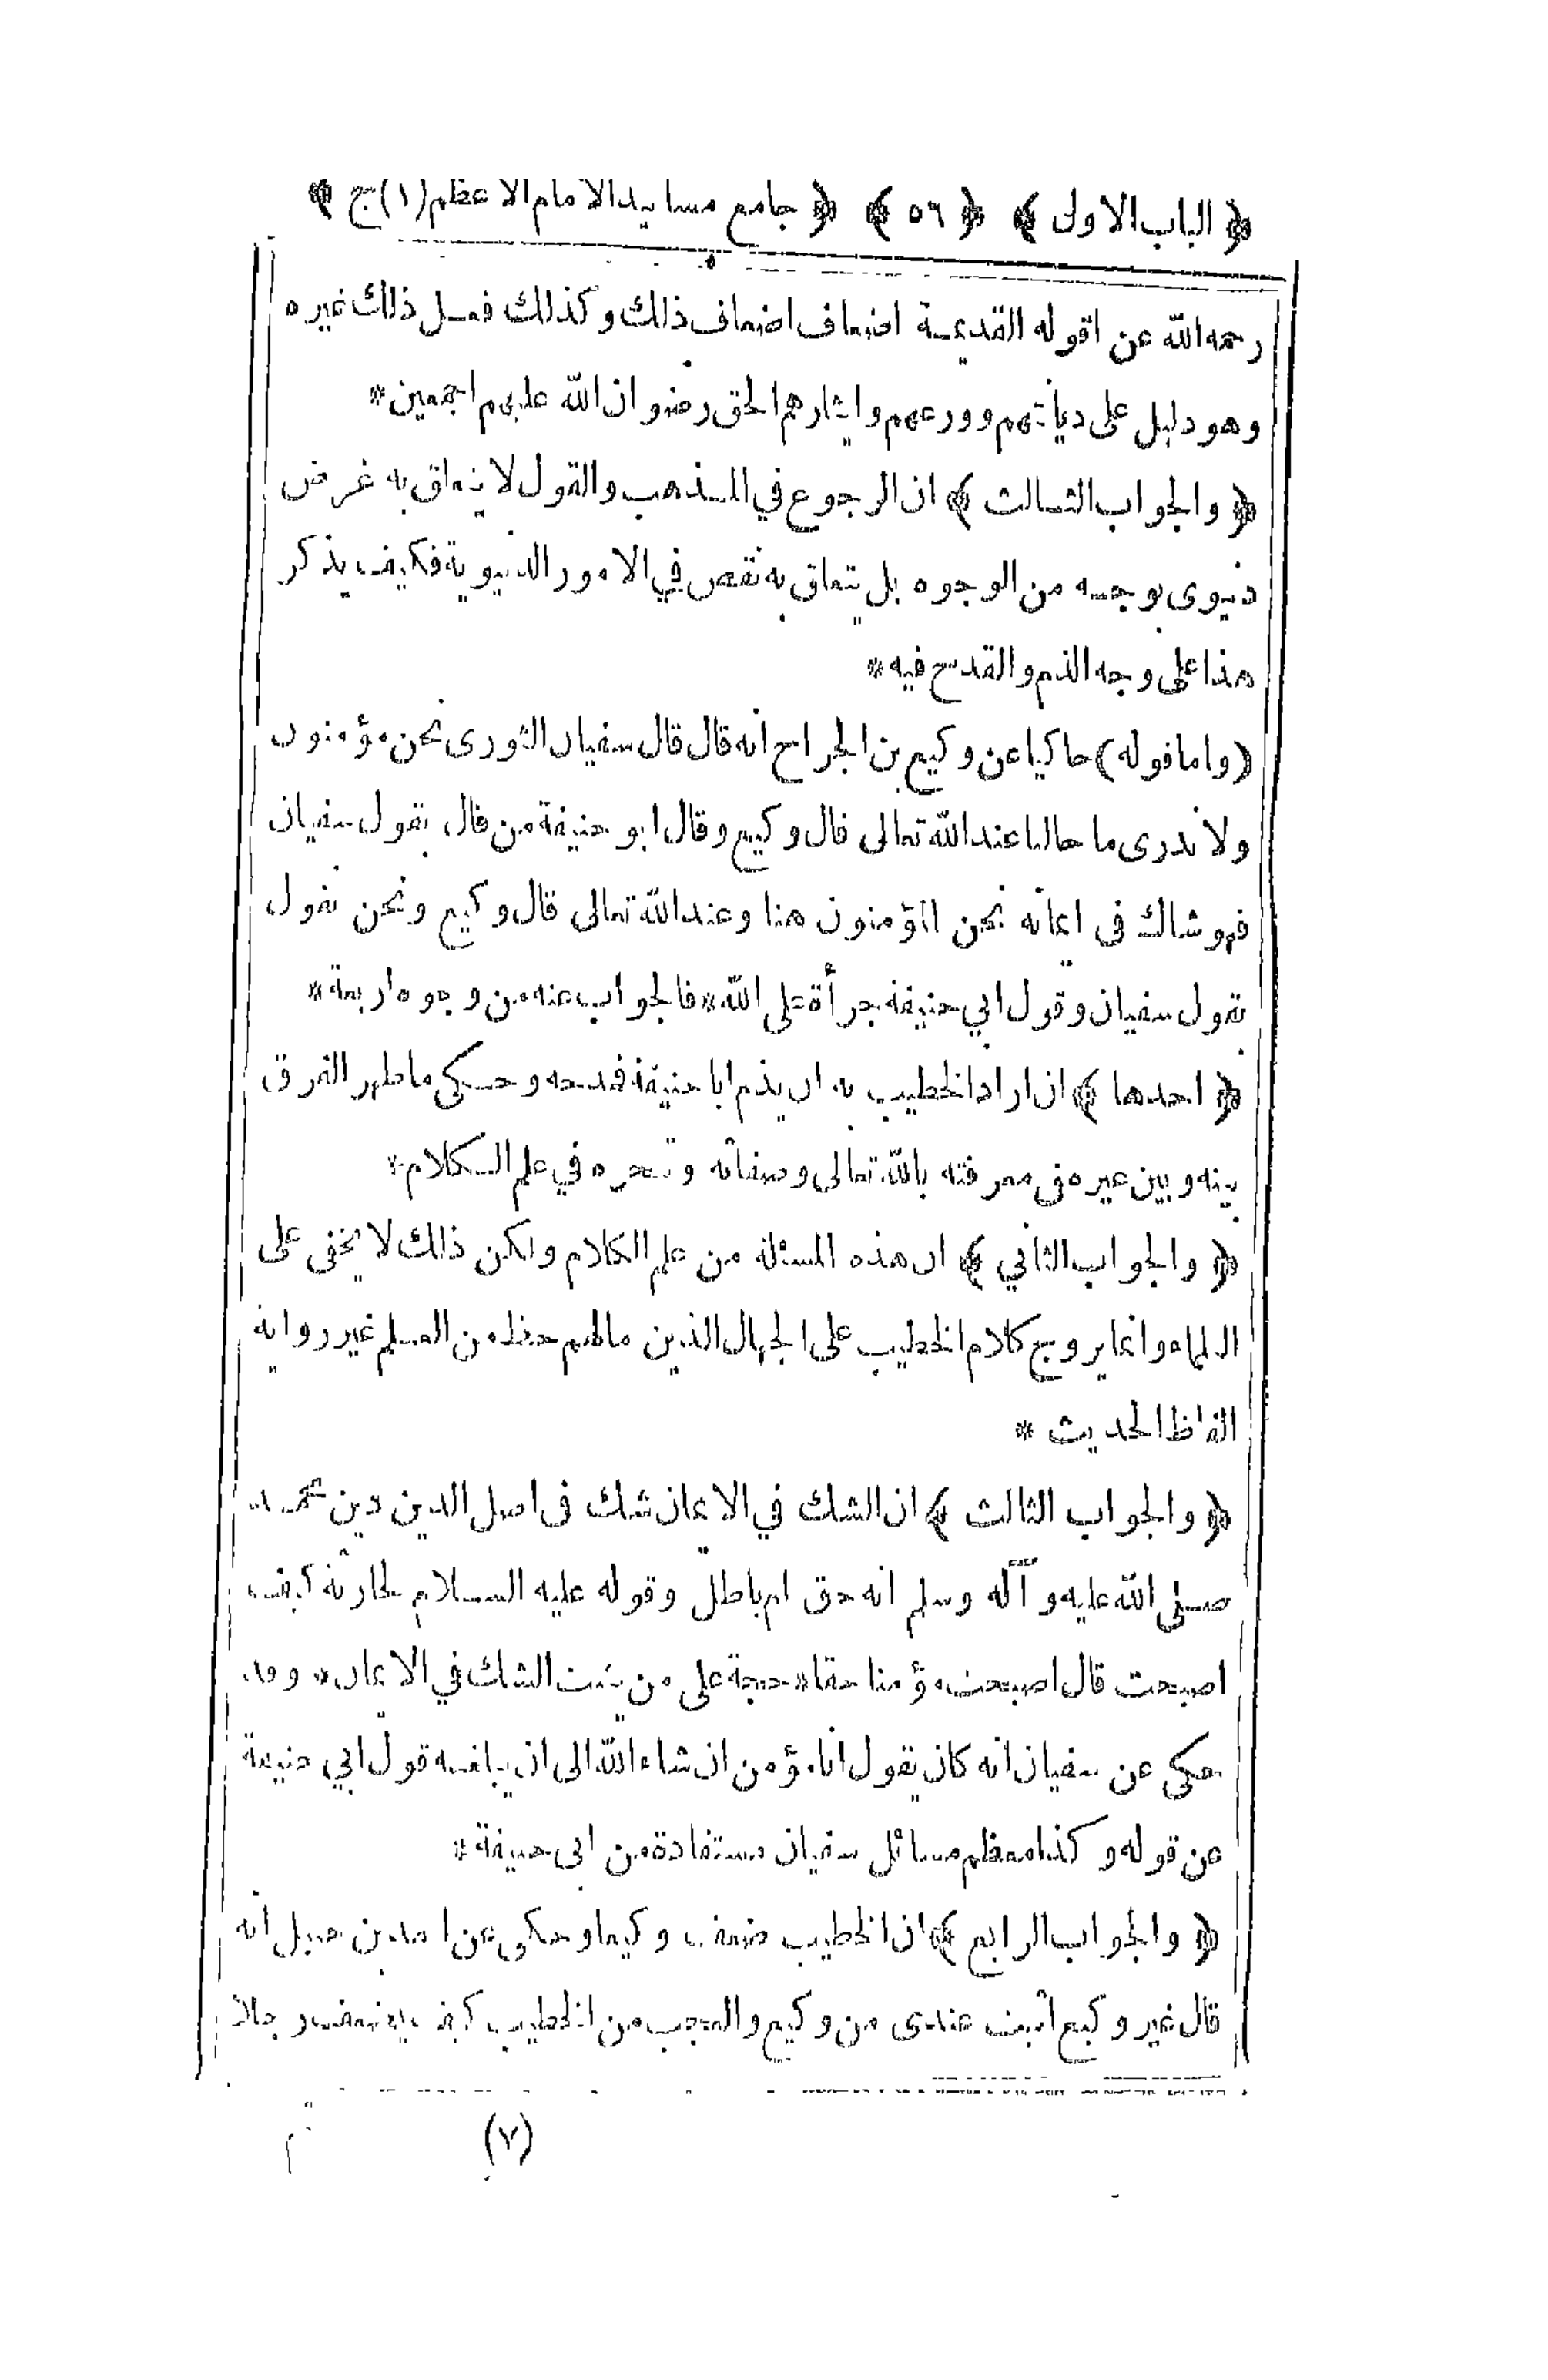 ﴿ الباب الاول ﴾ ﴿ ٥٦ ﴾ ﴿ جامع مسانيد الامام الاعظم (١) ج ﴾
رحمه الله عن اقوله القديمة اضعاف اضعاف ذلك وكذلك فعل ذلك غيره
وهو دليل على ديانتهم وورعهم وايثارهم الحق رضوان الله عليهم اجمعين *
﴿ والجواب الثالث ﴾ ان الرجوع في المذهب والقول لا يتعلق به غرض
دنيوى بوجه من الوجوه بل يتعلق به نقص في الامور الدنيوية فكيف يذكر
هذا على وجه الذم والقدح فيه *
(واما قوله) حاكيا عن وكيع بن الجراح انه قال قال سفيان الثورى نحن مؤمنون
ولا ندرى ما حالنا عند الله تعالى قال وكيع وقال ابو حنيفة من قال بقول سفيان
فهو شاك في ايمانه نحن المؤمنون هنا وعند الله تعالى قال وكيع ونحن نقول
بقول سفيان وقول ابي حنيفة جرأة على الله * فالجواب عنه من وجوه اربعة *
﴿ احدها ﴾ ان اراد الخطيب به ان يذم ابا حنيفة فمدحه وحكى ما ظهر الفرق
بينه وبين غيره في معرفته بالله تعالى وصفاته وتبحره في علم الكلام *
﴿ والجواب الثاني ﴾ ان هذه المسئلة من علم الكلام ولكن ذلك لا يخفى على
العلماء وانما يروج كلام الخطيب على الجهال الذين مالهم حظ من العلم غير رواية
الفاظ الحديث *
﴿ والجواب الثالث ﴾ ان الشك في الايمان شك في اصل الدين دين محمد
صلى الله عليه وآله وسلم انه حق ام باطل وقوله عليه السلام لحارثة كيف
اصبحت قال اصبحت مؤمنا حقا * حجة على من يثبت الشك في الايمان * وقد
حكى عن سفيان انه كان يقول انا مؤمن ان شاء الله الى ان بلغه قول ابي حنيفة
عن قوله وكذا معظم مسائل سفيان مستفادة من ابى حنيفة *
﴿ والجواب الرابع ﴾ ان الخطيب ضعف وكيعا وحكى عن احمد بن حنبل انه
قال غير وكيع اثبت عندى من وكيع والعجب من الخطيب كيف يضعف رجلا
(٧)